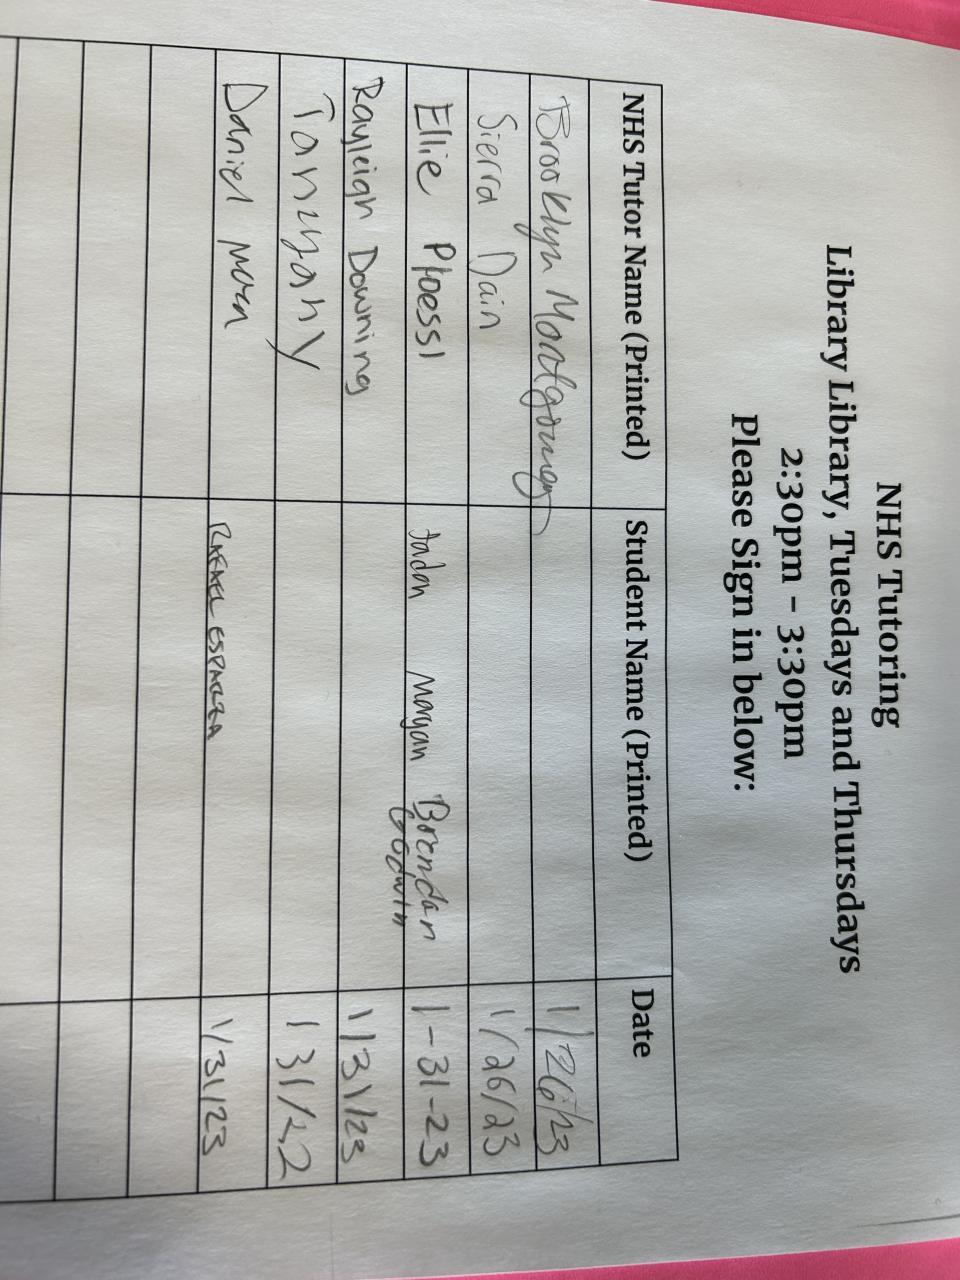 NHS Tutoring
Library Library, Tuesdays and Thursdays
2:30pm - 3:30pm
Please Sign in below:
NHS Tutor Name (Printed) Student Name (Printed) Date
Brooklyn Montgomery 1/26/23
Sierra Dain 1/26/23
Ellie Ploessl Jadon Morgan Brendan Godwin 1-31-23
Rayleigh Downing 1/31/23
1 31/22
Daniel Rafael Esparza 1/31/23